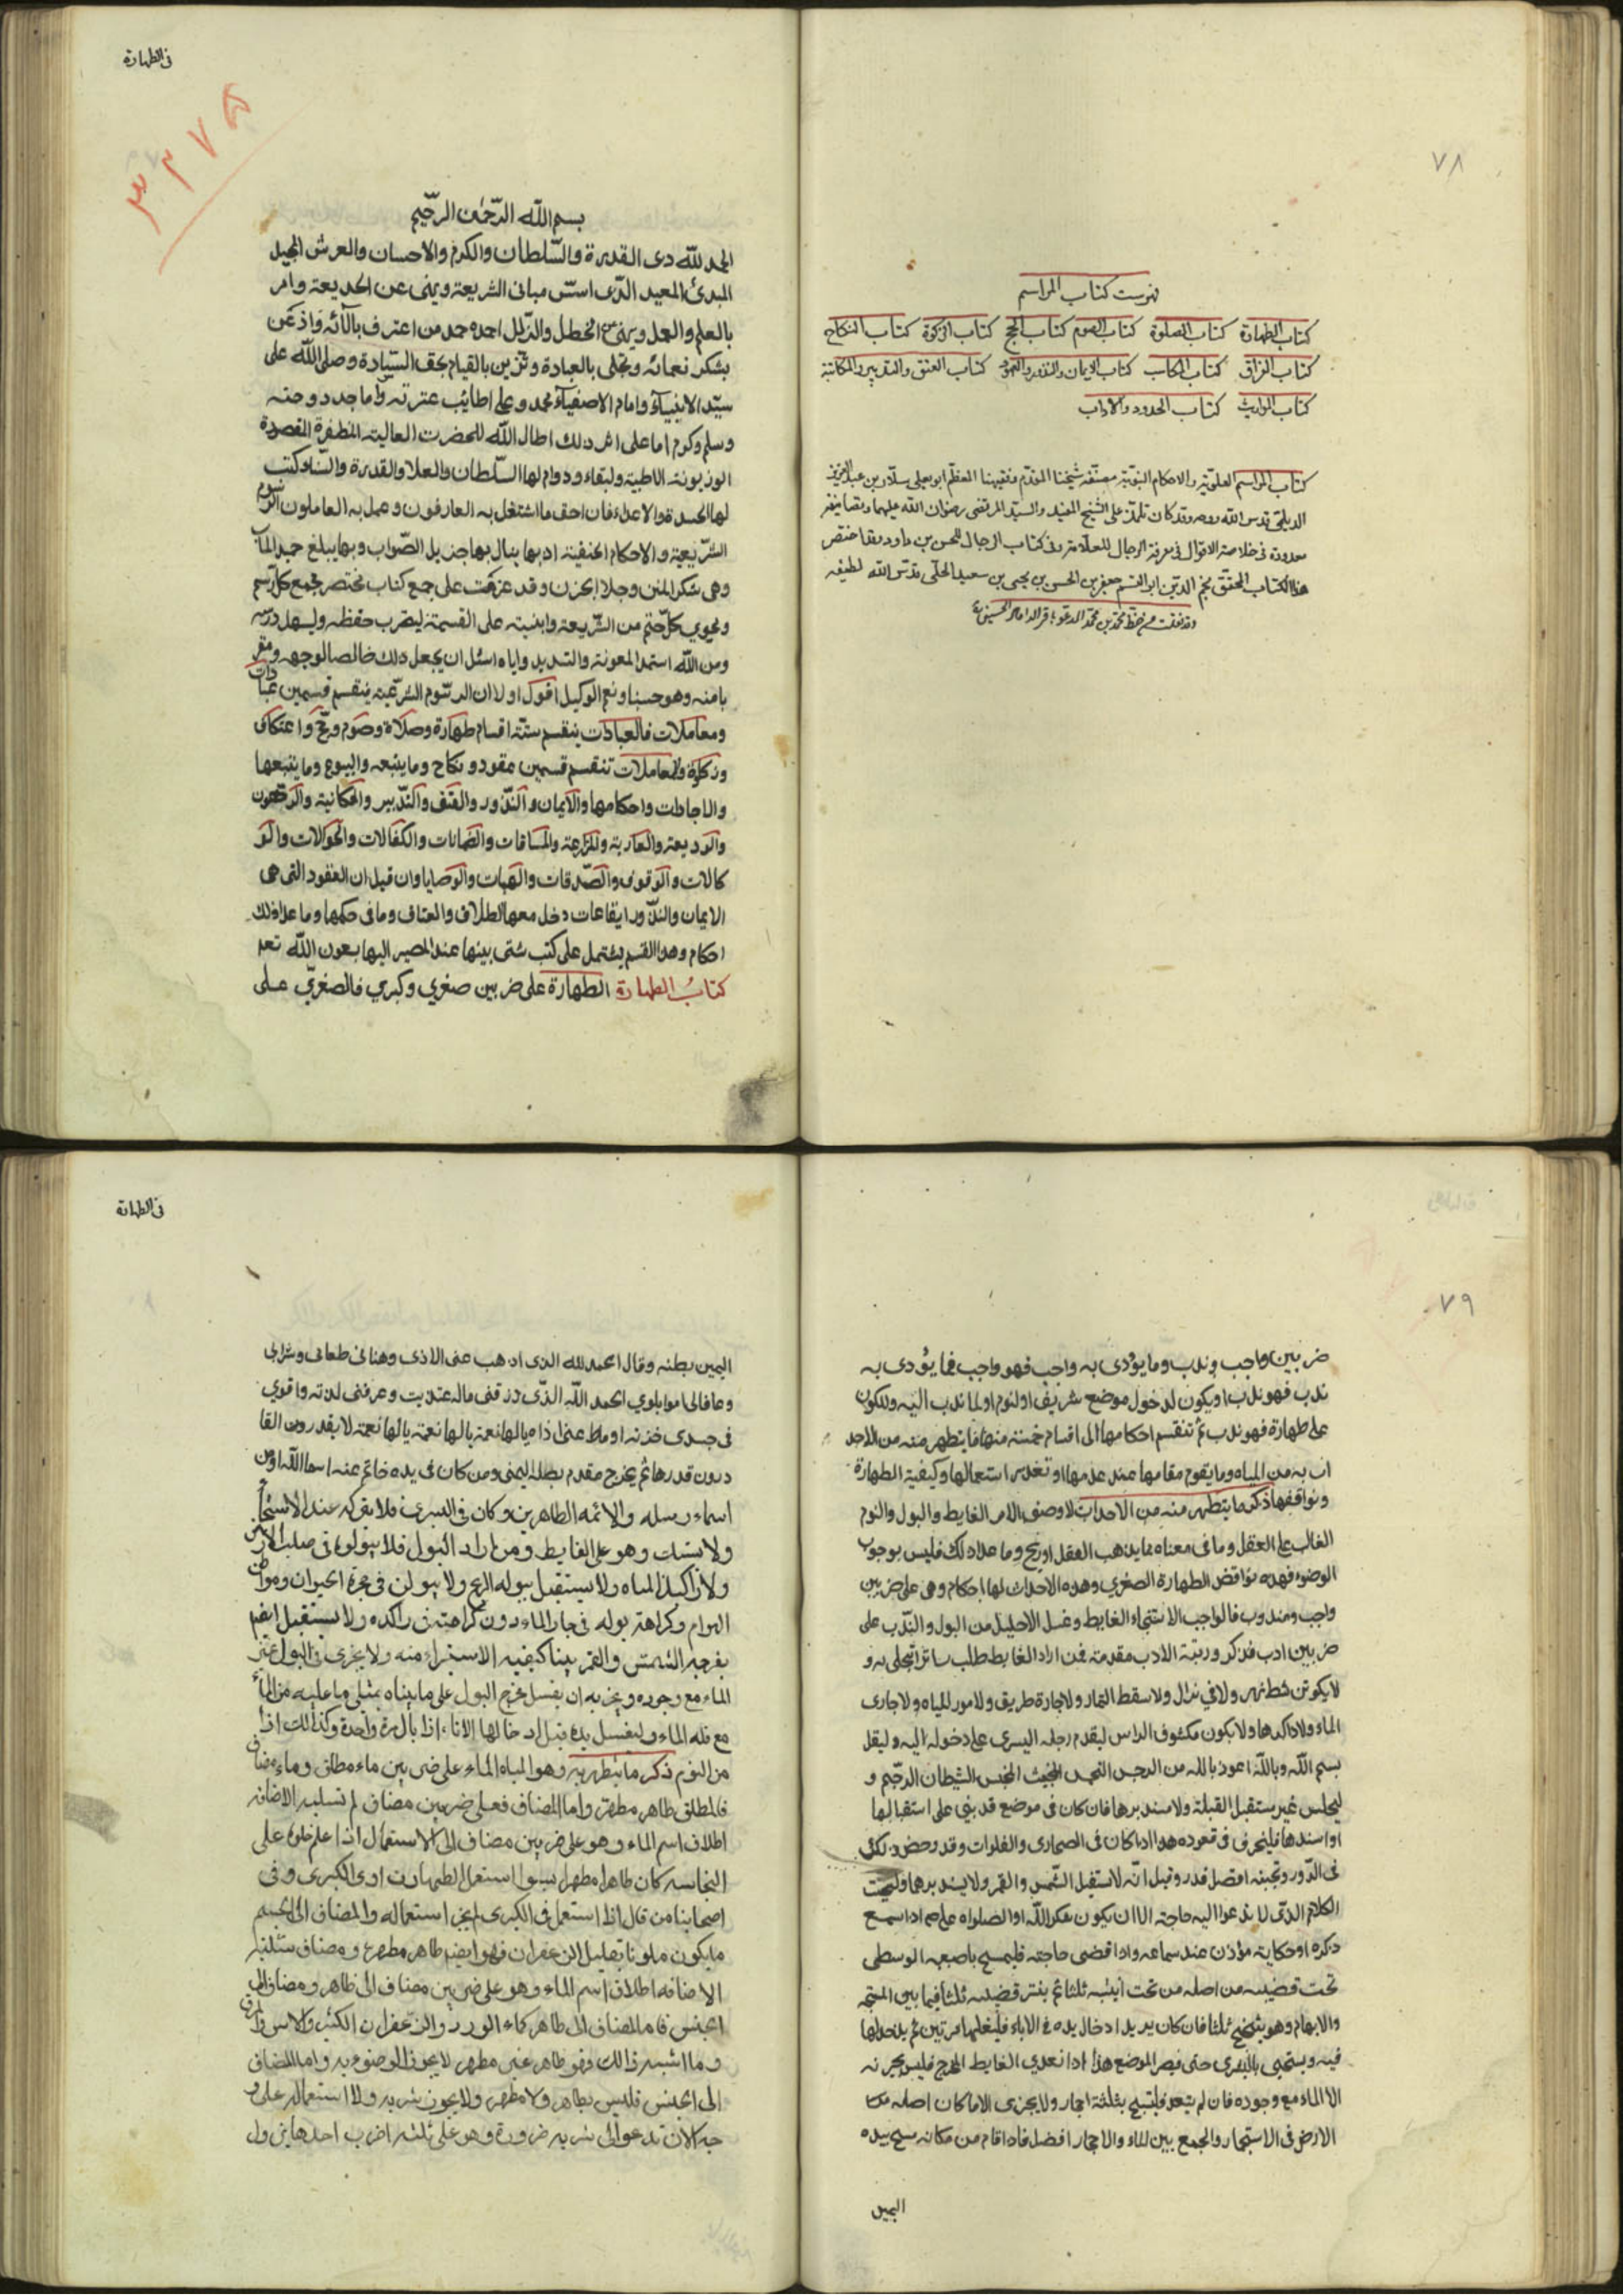 ٧٨
فهرست كتاب المراسم
كتاب الطهارة كتاب الصلوة كتاب الصوم كتاب الحج كتاب الزكوة كتاب النكاح
كتاب الفراق كتاب المكاسب كتاب الايمان والنذور والعهود كتاب العتق والتدبير والمكاتبة
كتاب المواريث كتاب الحدود والاداب
كتاب المراسم العلوّية والاحكام النبوّية مصنّفه شيخنا المقدّم وفقيهنا المعظّم ابو يعلى سلّار بن عبد العزيز
الديلمي قدس الله روحه وقد كان تلمّذ على الشيخ المفيد والسيّد المرتضى رضوان الله عليهما وتصانيفه
معدودة فى خلاصة الاقوال فى معرفة الرجال للعلّامة وفى كتاب الرجال للحسن بن داود وقد اختصر
هذا الكتاب المحقّق نجم الدين ابو القسم جعفر بن الحسن بن يحيى بن سعيد الحلّى قدّس الله لطيفه
وقد نقلت من خط محمّد بن محمّد المدعو باقر الداماد الحسينى
فى الطهارة
٣٢٧٥
بسم الله الرّحمٰن الرحّيم
الحمد للّه دى القدرة والسّلطان والكرم والاحسان والعرش المجيد
المبدئ المعيد الذّى اسسّ مبانى الشريعة ونهى عن الخديعة وامر
بالعلم والعمل ونهى عن الخطل والذلل احمده حمد من اعترف بآلآئه واذعن
بشكر نعمائه وتحلى بالعبادة وتزين بالقيام بحق السّيادة وصلى اللّه على
سيّد الانبيآء وامام الاصفيآء محمد وعلى اطائب عترته واماجد دوحته
وسلم وكرم اما على اثر دلك اطال اللّه للحضرت العالية المنظفرة المقصدة
لها الحسدة والاعداء فان احق ما اشتغل به العارفون وعمل به العاملون الرسوم
الشّريعية والاحكام الحنفيّة اد بها ينال بها جزيل الصّواب وبها يبلغ حميد المآب
وهى شكر المنن وجلاء الحزن وقد عزمت على جمع كتاب مختصر يجمع كل رسم
ويحوي كلّ حتم من الشّريعة وابنيته على القسمة ليقرب حفظه وليسهل درسه
ومن اللّه استمد المعونة والتسديد واياه اسئل ان يجعل دلك خالصا لوجهه ومقر
با منه وهو حسبنا ونعم الوكيل اقول اولا ان الرسّوم الشرّعية ينقسم قسمين عبادات
ومعاملات فالعبادات ينقسم ستّة اقسام طهارة وصلاة وصوم وحج واعتكاف
وزكوة والمعاملات تنقسم قسمين عقود ونكاح وما يتبعه والبيوع وما يتبعها
والاجارات واحكامها والايمان والنذّور والعتق والتدّبير والمكاتبة والرهون
والوديعة والعارية والمزارعة والمساقات والضمانات والكفالات والحوالات والو
كالات والوقوف والصّدقات والهبات والوصايا وان قيل ان العقود التى هى
الايمان والنذّور ايقاعات دخل معها الطلاق والعتاق وما فى حكمها وما عدا ذلك
احكام وهدا القسم يشتمل على كتب شتى بينها عند المصير اليها بعون اللّه تعه
كتابُ الطهارة الطهارة على ضربين صغري وكبري فالصغري على
٧٩
ضربين واجب وندب وما يؤدى به واجب فهو واجب فما يؤدى به
ندب فهو ندب او يكون لدخول موضع شريف او لنوم او لما ندب اليه وللكون
على طهارة فهو ندب ثم تنقسم احكامها الى اقسام خمسة منها ما يتطهر منه من الاحد
اث به من المياه وما يقوم مقامها عند عدمها او تعذر استعمالها وكيفية الطهارة
ونواقضها ذكر ما يتطهر منه من الاحداث لا وضوء الا من الغايط والبول والنوم
الغالب على العقل وما فى معناه مما يذهب العقل او ريح وما عدا دلك فليس بوجوب
الوضوء فهده نواقض الطهارة الصغري وهده الاحداث لها احكام وهى على ضربين
واجب ومندوب فالواجب الاستنجاء الغايط وغسل الاحليل من البول والنّدب على
ضربين ادب وذكر ورتبة الادب مقدمة فمن اراد الغايط طلب ساترا يتخلى به و
لا يكونن شط نهر ولا فى نزال ولا مسقط الثمار ولا جارة طريق ولا مورد المياه ولا جارى
الماء ولا راكدها ولا يكون مكشوف الراس ليقدم رجله اليسرى على دخوله اليه وليقل
بسم الله وبالله اعوذ بالله من الرجس النجس الخبيث المخبث الشيطان الرجيم و
ليجلس غير مستقبل القبلة ولا مستدبرها فان كان فى موضع قد بنى على استقبالها
او استدبرها فلينحرف فى قعوده هدا ادا كان فى الصحارى والفلوات وقد رخص دلك
فى الدور وتجنبه افضل وقد قيل انّه لا يستقبل الشّمس والقمر ولا يستدبرهما
الكلام الذى لا تدعوا اليه حاجة الا ان يكون شكر اللّه او الصلواه على محمد ادا سمع
دكره او حكاية مؤذن عند سماعه وادا قضى حاجته فليمسح باصبعه الوسطى
تحت قضيبه من اصله من تحت انثييه ثلثا ثم ينتر قضيبه ثلثا فيما بين المسبّحه
والابهام وهو يتنحنح ثلثا فان كان يريد ادخال يده فى الاناء فليغسلها مرتين ثم يدخلها
فيه ويستنجى باليسرى حتى يصر الموضع هذا ادا تعدى الغايط المخرج فليس يجزيه
الا الماء مع وجوده فان لم يتعد فليستنج بثلثة احجار ولا يجزى الا ما كان اصله
الارض فى الاستجمار والجمع بين الماء والاحجار افضل فادا قام من مكانه مسح بيده
اليمين
فى الطهارة
اليمين بطنه وقال الحمد للّه الذى ادهب عنى الاذى وهنانى طعامى وشرابى
وعافانى من البلوى الحمد اللّه الذّى رزقنى ماله عتديت وعرفنى لدته وابقى
فى جسدى قوته اماط عنى اذاه يالها نعمة يالها نعمة يالها نعمة لا يقدرون القا
درون قدرها ثم يخرج مقدم رجله اليمنى ومن كان فى يده خاتم عنه اسماالله او من
اسماء رسله والائمه الطاهرين وكان فى اليسرى فلا يتركه عند الاستنجاء
ولا يستاك وهو على الغايط ومن اراد البول فلا يبولن فى صلب الارض
ولا راكد المياه ولا يستقبل ببوله الريح ولا يبولن فى جحرة الحيوان ومواطن
الهوام وكراهة بوله فى جار الماء دون كراهيته فى راكده ولا يستقبل ايضم
بفرجه الشمس والقمر بينا كيفيه الاستبراء منه ولا يجزى فى البول غير
الماء مع وجوده ويجزيه ان يغسل مخرج البول على ما بيناه بمثلى ما عليه من الماء
مع قله الماء وليغسل يده قبل ادخالها الاناء، اذا بال مرة واحدة وكذالك اذا
من النوم ذكر ما يتطهر به وهو المياه الماء على ضربين ماء مطلق وماء مضاف
فالمطلق طاهر مطهر واما المضاف فعلى ضربين مضاف لم تسلبه الاضافه
اطلاق اسم الماء وهو على ضربين مضاف الى الاستعمال اذا علم خلوه على
النجاسه كان طاهرا مطهرا سوا استعمل الطهارت او فى الكبرى وفى
اصحابنا من قال اذا استعمل فى الكبرى لم يجز استعماله والمضاف الى الجسم
ما يكون ملونا بقليل الزعفران فهو ايضم طاهر مطهر ومضاف سلبته
الاضافه اطلاق اسم الماء وهو على ضربين مضاف الى طاهر ومضاف الى
النجس فاما المضاف الى طاهر كماء الورد والزعفران الكثير والاس والمرق
وما اشبه ذالك فهو طاهر غير مطهر لا يجوز الوضوء به واما المضاف
الى النجس فليس بطاهر ولا مطهر ولا يجوز شربه ولا استعماله على و
جه الا ان تدعوا الى شربه ضرورة وهو على ثلثه اضرب احدها يزول